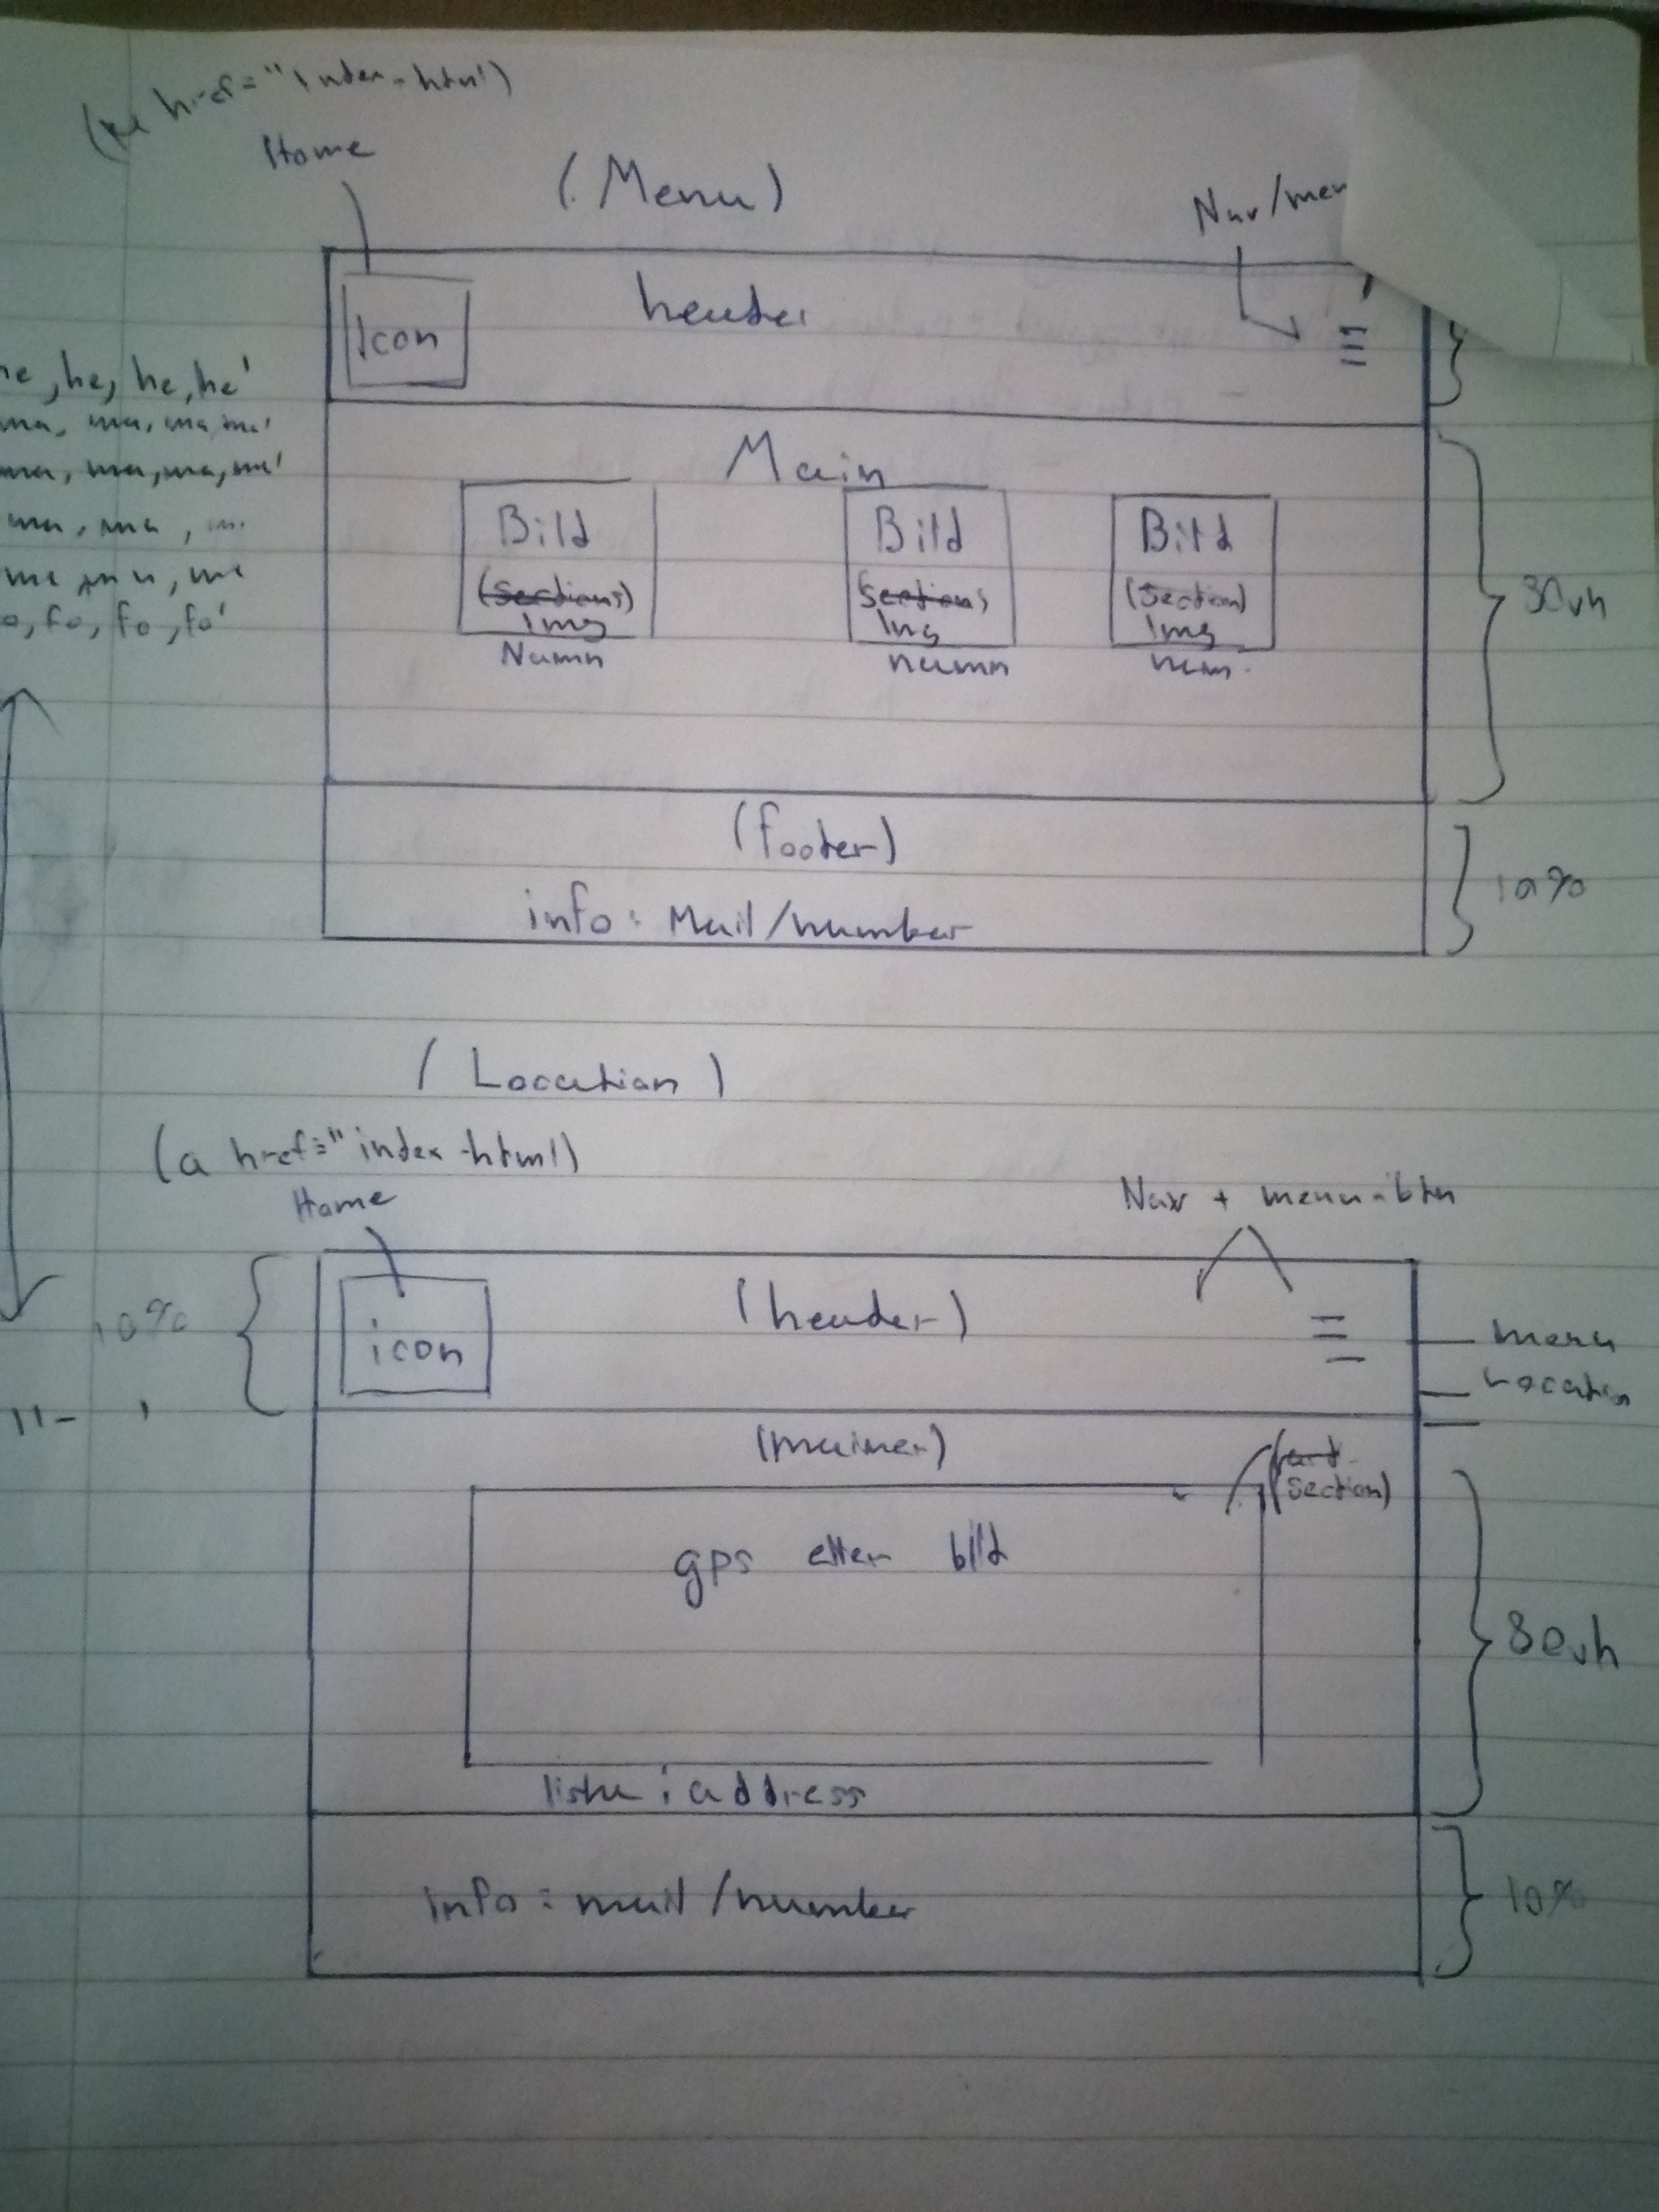 href="index.html)
Home
(Menu)
Nav/men
Icon
header
he, he, he, he'
ma, ma, ma, ma'
ma, ma, ma, ma'
ma, ma,
fo, fo, fo'
Main
Bild
Bild
Bild
(Sections)
Sections
(Section)
Img
Img
Img
Namn
namn
nam
30vh
(footer)
info: Mail/number
10%
(Location)
(a href="index.html)
Home
Nav + menu-btn
10%
icon
(header)
menu
Location
section)
gps eller bild
80vh
lista: address
info: mail/number
10%